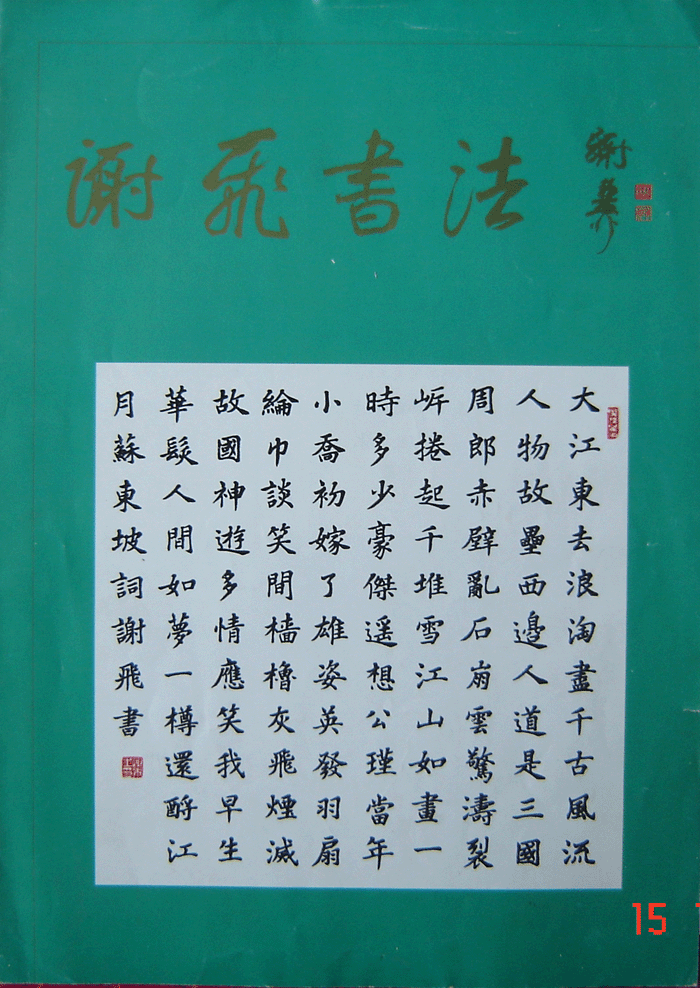 謝飛書法
大江東去浪淘盡千古風流
人物故壘西邊人道是三國
周郎赤壁亂石崩雲驚濤裂
岸捲起千堆雪江山如畫一
時多少豪傑遥想公瑾當年
小喬初嫁了雄姿英發羽扇
綸巾談笑間檣櫓灰飛煙滅
故國神遊多情應笑我早生
華髮人間如夢一樽還酹江
月蘇東坡詞謝飛書
15